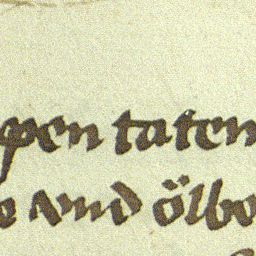 pen taten
e vnd ölbo